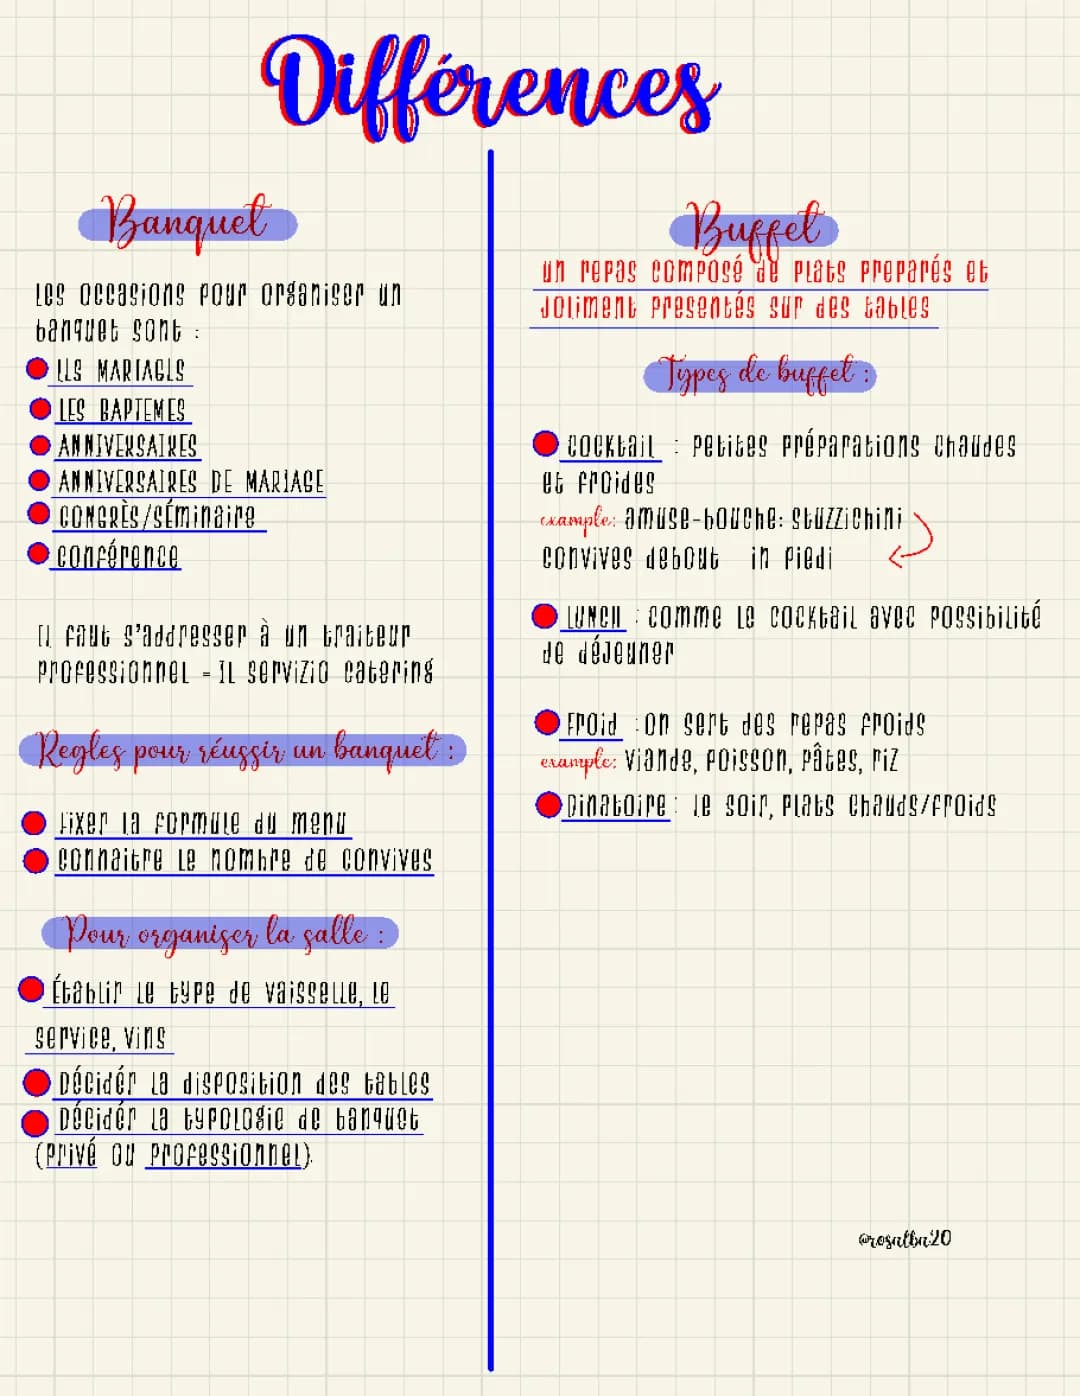 Différences
Banquet
Les occasions pour organiser un
banquet sont :
LES MARIAGES
LES BAPTEMES
ANNIVERSAIRES
ANNIVERSAIRES DE MARIAGE
CONGRÈS/SÉminaire
conférence
Il faut s'addresser à un traiteur
professionnel = IL servizio catering
Regles pour réussir un banquet :
Fixer la formule du menu
connaitre le nombre de convives
Pour organiser la salle :
Établir le type de vaisselle, le
service, vins
Décidér la disposition des tables
Décidér la typologie de banquet
(privé ou professionnel).
Buffet
un repas composé de plats preparés et
joliment presentés sur des tables
Types de buffet :
cocktail : petites préparations chaudes
et froides
example: amuse-bouche: stuzzichini
convives debout in piedi
LUNCH : comme le cocktail avec possibilité
de déjeuner
Froid : on sert des repas froids
example: viande, poisson, pâtes, riz
Dinatoire : le soir, plats chauds/froids
@rosalba20